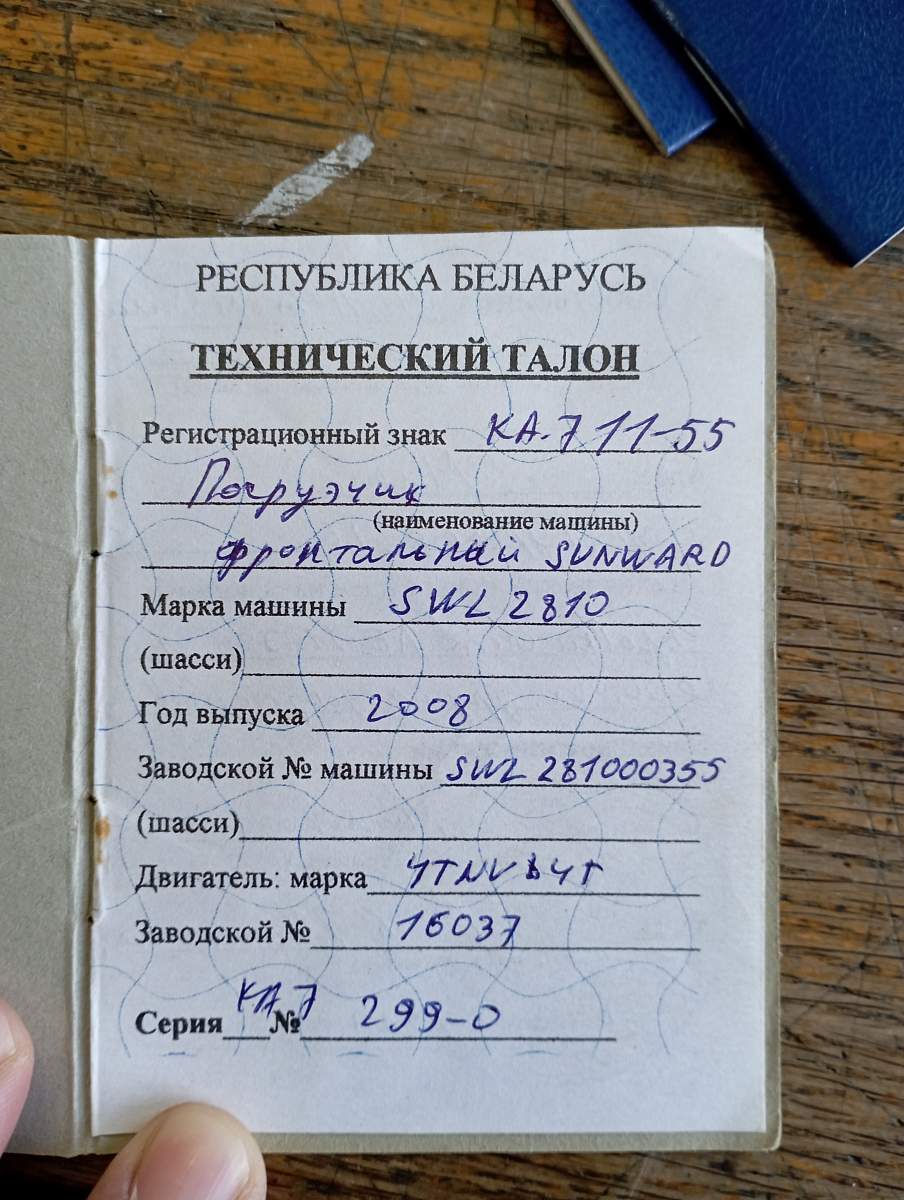 РЕСПУБЛИКА БЕЛАРУСЬ
ТЕХНИЧЕСКИЙ ТАЛОН
Регистрационный знак КА-7 11-55
Погрузчик
(наименование машины)
фронтальный SUNWARD
Марка машины SWL 2810
(шасси)
Год выпуска 2008
Заводской № машины SWL 281000355
(шасси)
Двигатель: марка
Заводской № 16037
Серия КА-7 № 299-0